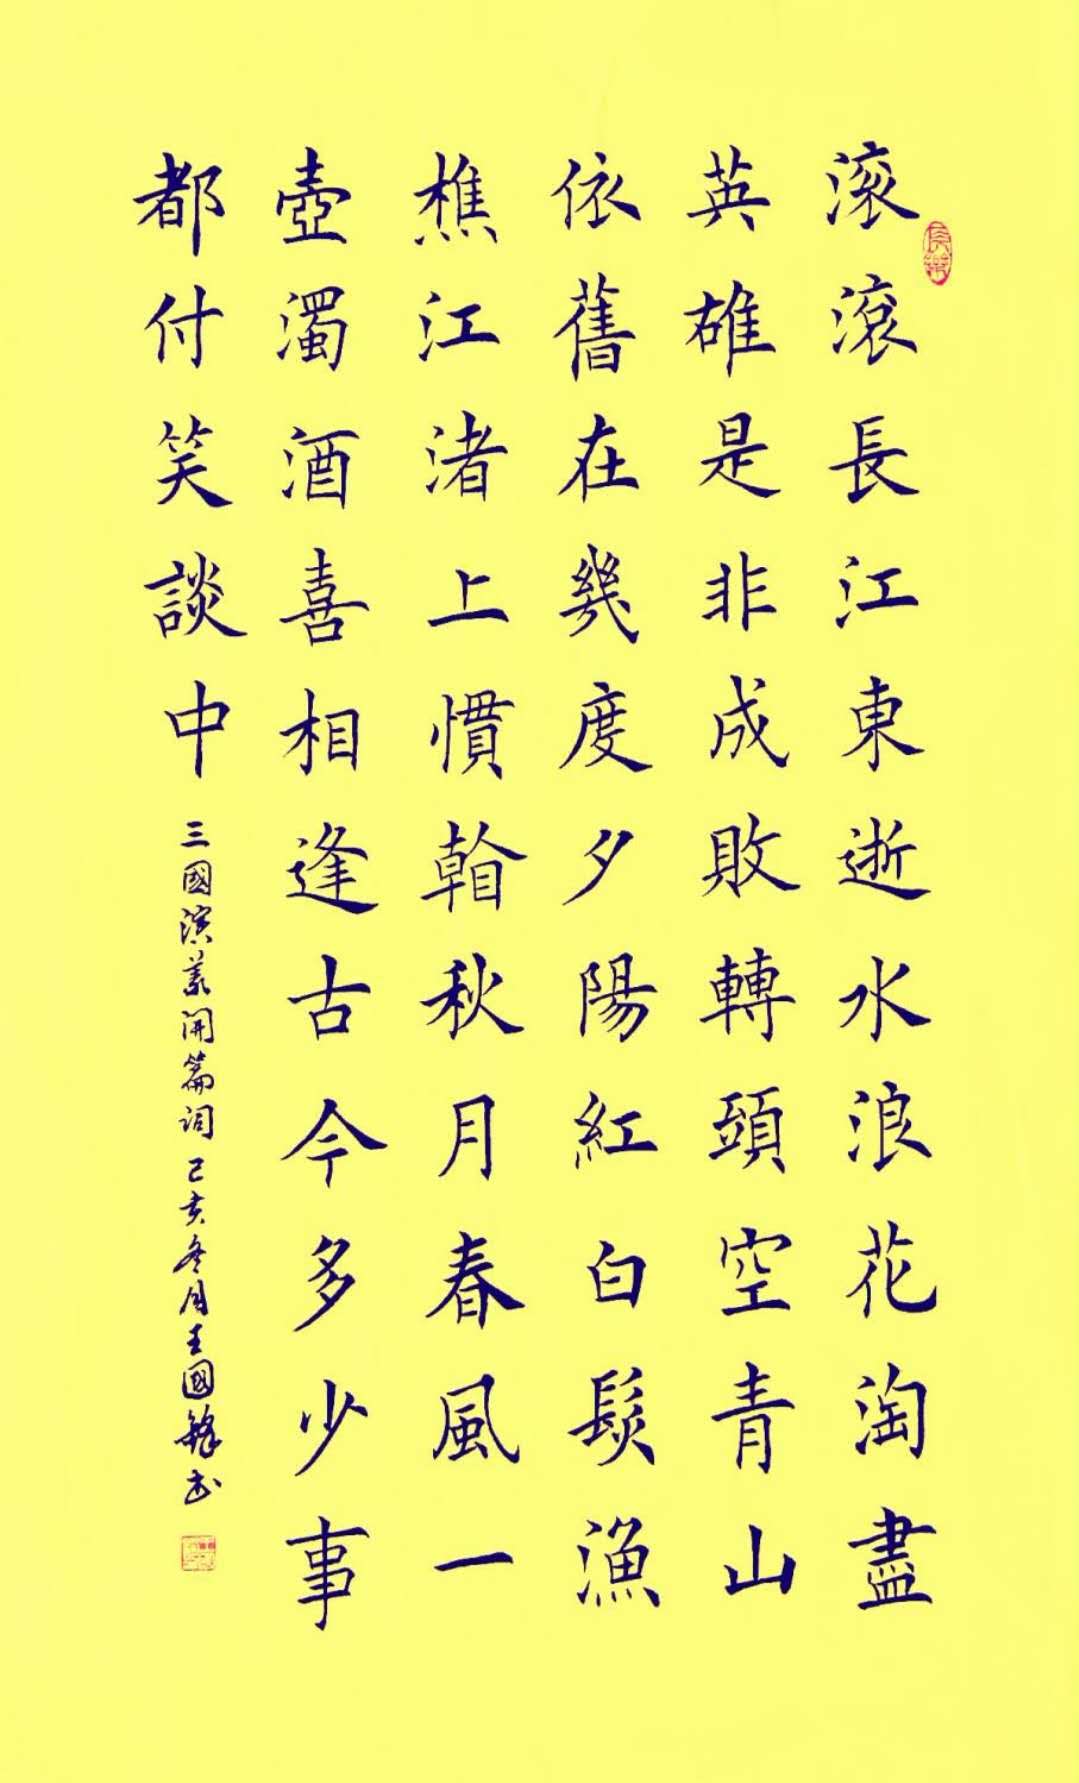 滚滾長江東逝水浪花淘盡
英雄是非成敗轉頭空青山
依舊在幾度夕陽紅白髮漁
樵江渚上慣看秋月春風一
壺濁酒喜相逢古今多少事
都付笑談中
三國演義開篇詞己亥冬月王國鋒书